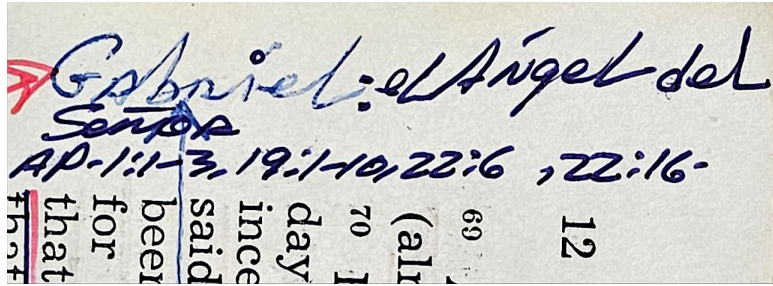 Gabriel: el Ángel del
Señor
AP-1:1-3, 19:1-10, 22:6 , 22:16-
12
69
(alr
70
day
ince
said
been
for
that
that